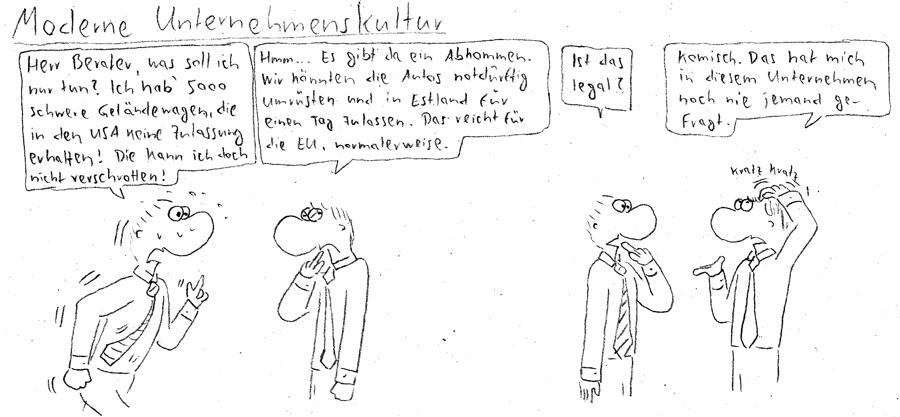 Moderne Unternehmenskultur
Herr Berater, was soll ich
nur tun? Ich hab' 5000
schwere Geländewagen, die
in den USA keine Zulassung
erhalten! Die kann ich doch
nicht verschrotten!
Hmm... Es gibt da ein Abkommen.
Wir könnten die Autos notdürftig
umrüsten und in Estland für
einen Tag zulassen. Das reicht für
die EU, normalerweise.
Ist das
legal?
Komisch. Das hat mich
in diesem Unternehmen
noch nie jemand ge-
fragt.
Kratz Kratz